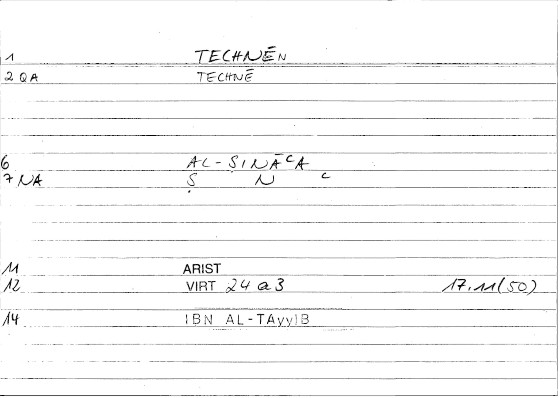 1 TECHNĒN
2 QA TECHNĒ
6 AL-ṢINĀᶜA
7 NA Ṣ N ᶜ
11 ARIST
12 VIRT 24 a 3 17.11(50)
14 IBN AL-TAyyIB